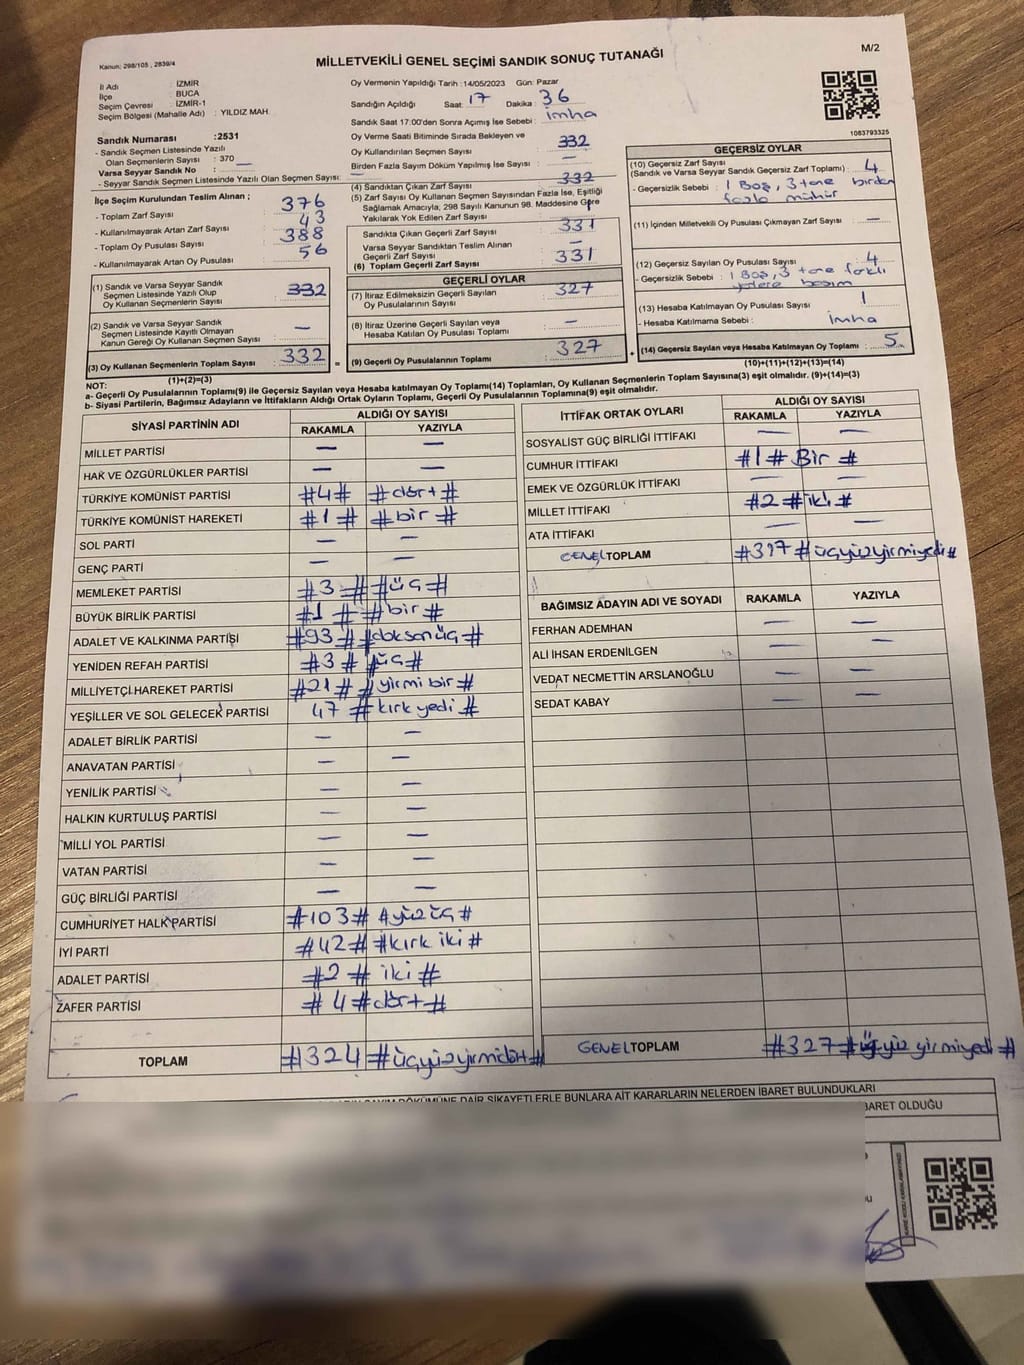 Kanun; 298/105 , 2839/4
MİLLETVEKİLİ GENEL SEÇİMİ SANDIK SONUÇ TUTANAĞI
M/2
İl Adı : İZMİR
İlçe : BUCA
Seçim Çevresi : İZMİR-1
Seçim Bölgesi (Mahalle Adı) : YILDIZ MAH.
Sandık Numarası :2531
- Sandık Seçmen Listesinde Yazılı
Olan Seçmenlerin Sayısı : 370
Varsa Seyyar Sandık No :
- Seyyar Sandık Seçmen Listesinde Yazılı Olan Seçmen Sayısı: —
İlçe Seçim Kurulundan Teslim Alınan ;
- Toplam Zarf Sayısı : 376
- Kullanılmayarak Artan Zarf Sayısı : 43
- Toplam Oy Pusulası Sayısı : 388
- Kullanılmayarak Artan Oy Pusulası : 56
(1) Sandık ve Varsa Seyyar Sandık
Seçmen Listesinde Yazılı Olup
Oy Kullanan Seçmenlerin Sayısı : 332
(2) Sandık ve Varsa Seyyar Sandık
Seçmen Listesinde Kayıtlı Olmayan
Kanun Gereği Oy Kullanan Seçmen Sayısı : —
(3) Oy Kullanan Seçmenlerin Toplam Sayısı : 332
(1)+(2)=(3)
Oy Vermenin Yapıldığı Tarih : 14/05/2023 Gün: Pazar
Sandığın Açıldığı Saat: 17 Dakika : 36
Sandık Saat 17:00'den Sonra Açımış İse Sebebi : imha
Oy Verme Saati Bitiminde Sırada Bekleyen ve
Oy Kullandırılan Seçmen Sayısı : 332
Birden Fazla Sayım Döküm Yapılmış İse Sayısı : —
(4) Sandıktan Çıkan Zarf Sayısı : 332
(5) Zarf Sayısı Oy Kullanan Seçmen Sayısından Fazla İse, Eşitliği
Sağlamak Amacıyla, 298 Sayılı Kanunun 98. Maddesine Göre
Yakılarak Yok Edilen Zarf Sayısı :
Sandıkta Çıkan Geçerli Zarf Sayısı : 331
Varsa Seyyar Sandıktan Teslim Alınan
Geçerli Zarf Sayısı : —
(6) Toplam Geçerli Zarf Sayısı : 331
GEÇERLİ OYLAR
(7) İtiraz Edilmeksizin Geçerli Sayılan
Oy Pusulalarının Sayısı : 327
(8) İtiraz Üzerine Geçerli Sayılan veya
Hesaba Katılan Oy Pusulası Toplamı : —
= (9) Geçerli Oy Pusulalarının Toplamı : 327
1083793325
GEÇERSİZ OYLAR
(10) Geçersiz Zarf Sayısı
(Sandık ve Varsa Seyyar Sandık Geçersiz Zarf Toplamı) : 4
- Geçersizlik Sebebi : 1 Boş, 3 tane birden
fazla mühür
(11) İçinden Milletvekili Oy Pusulası Çıkmayan Zarf Sayısı : —
(12) Geçersiz Sayılan Oy Pusulası Sayısı : 4
- Geçersizlik Sebebi : 1 Boş, 3 tane farklı
yerlere basım
(13) Hesaba Katılmayan Oy Pusulası Sayısı : 1
- Hesaba Katılmama Sebebi : imha
+ (14) Geçersiz Sayılan veya Hesaba Katılmayan Oy Toplamı : 5
(10)+(11)+(12)+(13)=(14)
NOT:
a- Geçerli Oy Pusulalarının Toplamı(9) ile Geçersiz Sayılan veya Hesaba katılmayan Oy Toplamı(14) Toplamları, Oy Kullanan Seçmenlerin Toplam Sayısına(3) eşit olmalıdır. (9)+(14)=(3)
b- Siyasi Partilerin, Bağımsız Adayların ve İttifakların Aldığı Ortak Oyların Toplamı, Geçerli Oy Pusulalarının Toplamına(9) eşit olmalıdır.
SİYASİ PARTİNİN ADI ALDIĞI OY SAYISI
RAKAMLA YAZIYLA
MİLLET PARTİSİ — —
HAK VE ÖZGÜRLÜKLER PARTİSİ — —
TÜRKİYE KOMÜNİST PARTİSİ #4# #dört#
TÜRKİYE KOMÜNİST HAREKETİ #1# #bir#
SOL PARTİ — —
GENÇ PARTİ — —
MEMLEKET PARTİSİ #3# #üç#
BÜYÜK BİRLİK PARTİSİ #1# #bir#
ADALET VE KALKINMA PARTİSİ #93# #doksanüç#
YENİDEN REFAH PARTİSİ #3# #üç#
MİLLİYETÇİ HAREKET PARTİSİ #21# #yirmi bir#
YEŞİLLER VE SOL GELECEK PARTİSİ 47 #kırk yedi#
ADALET BİRLİK PARTİSİ — —
ANAVATAN PARTİSİ — —
YENİLİK PARTİSİ — —
HALKIN KURTULUŞ PARTİSİ — —
MİLLİ YOL PARTİSİ — —
VATAN PARTİSİ — —
GÜÇ BİRLİĞİ PARTİSİ — —
CUMHURİYET HALK PARTİSİ #103# #yüz üç#
İYİ PARTİ #42# #kırk iki#
ADALET PARTİSİ #2# iki#
ZAFER PARTİSİ #4#dört#
TOPLAM #324 #üçyüzyirmidört#
İTTİFAK ORTAK OYLARI ALDIĞI OY SAYISI
RAKAMLA YAZIYLA
SOSYALİST GÜÇ BİRLİĞİ İTTİFAKI — —
CUMHUR İTTİFAKI #1# Bir #
EMEK VE ÖZGÜRLÜK İTTİFAKI — —
MİLLET İTTİFAKI #2#iki#
ATA İTTİFAKI — —
GENEL TOPLAM #327#üçyüzyirmiyedi#
BAĞIMSIZ ADAYIN ADI VE SOYADI RAKAMLA YAZIYLA
FERHAN ADEMHAN — —
ALİ İHSAN ERDENİLGEN — —
VEDAT NECMETTİN ARSLANOĞLU — —
SEDAT KABAY — —
GENEL TOPLAM #327#üçyüz yirmiyedi#
DÖKÜMÜNE DAİR ŞİKAYETLERLE BUNLARA AİT KARARLARIN NELERDEN İBARET BULUNDUKLARI
İBARET OLDUĞU